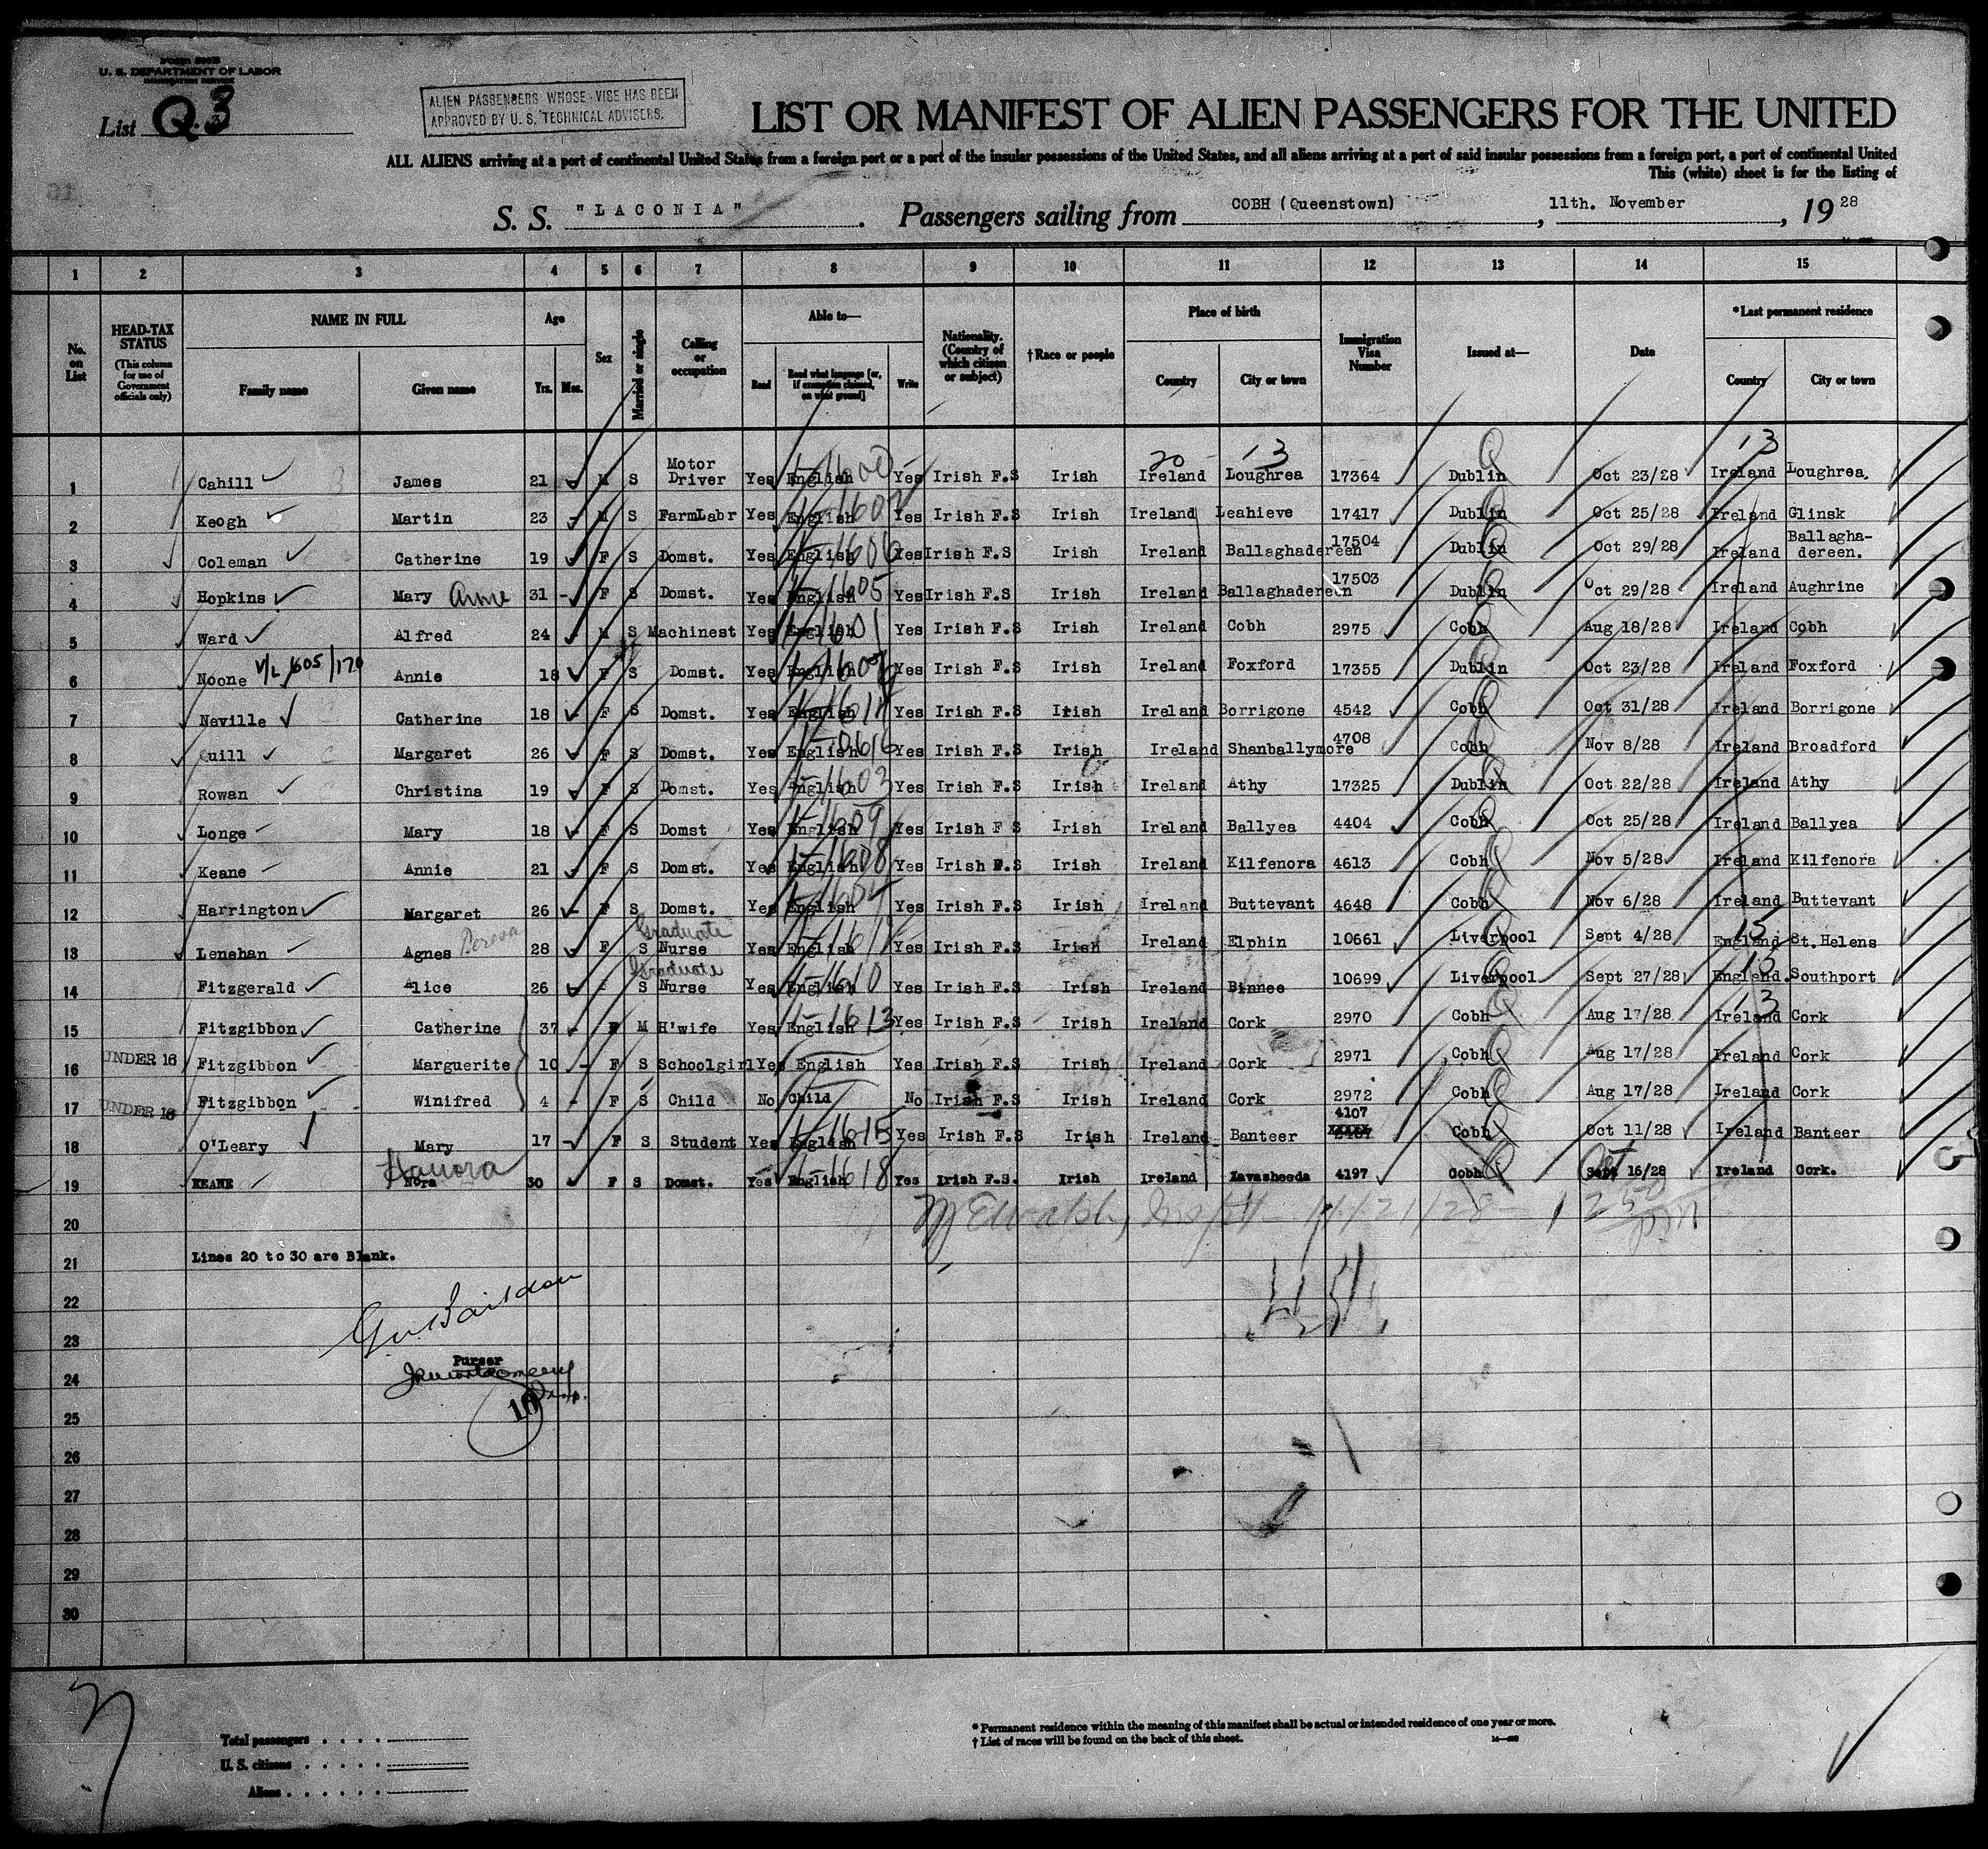 FORM 500B
U. S. DEPARTMENT OF LABOR
IMMIGRATION SERVICE
List Q. 3
ALIEN PASSENGERS WHOSE VISE HAS BEEN
APPROVED BY U. S. TECHNICAL ADVISERS.
LIST OR MANIFEST OF ALIEN PASSENGERS FOR THE UNITED
ALL ALIENS arriving at a port of continental United States from a foreign port or a port of the insular possessions of the United States, and all aliens arriving at a port of said insular possessions from a foreign port, a port of continental United
This (white) sheet is for the listing of
S. S. "LACONIA". Passengers sailing from COBH (Queenstown), 11th. November, 1928
1 2 3 4 5 6 7 8 9 10 11 12 13 14 15
No. on List
HEAD-TAX STATUS (This column for use of Government officials only)
NAME IN FULL Family name Given name
Age Yrs. Mos.
Sex
Married or single
Calling or occupation
Able to— Read Read what language [or, if exemption claimed, on what ground] Write
Nationality. (Country of which citizen or subject)
†Race or people
Place of birth Country City or town
Immigration Visa Number
Issued at—
Date
*Last permanent residence Country City or town
20 13 13
1 Cahill James 21 M S Motor Driver Yes English Yes Irish F.S Irish Ireland Loughrea 17364 Dublin Oct 23/28 Ireland Loughrea.
2 Keogh Martin 23 M S FarmLabr Yes English Yes Irish F.S Irish Ireland Leahieve 17417 Dublin Oct 25/28 Ireland Glinsk
3 Coleman Catherine 19 F S Domst. Yes English Yes Irish F.S Irish Ireland Ballaghadereen 17504 Dublin Oct 29/28 Ireland Ballagha-dereen.
4 Hopkins Mary Anne 31 - F S Domst. Yes English Yes Irish F.S Irish Ireland Ballaghadereen 17503 Dublin Oct 29/28 Ireland Aughrine
5 Ward Alfred 24 M S Machinest Yes English Yes Irish F.S Irish Ireland Cobh 2975 Cobh Aug 18/28 Ireland Cobh
6 Noone V/L 605/170 Annie 18 F S Domst. Yes English Yes Irish F.S Irish Ireland Foxford 17355 Dublin Oct 23/28 Ireland Foxford
7 Neville Catherine 18 F S Domst. Yes English Yes Irish F.S Irish Ireland Borrigone 4542 Cobh Oct 31/28 Ireland Borrigone
8 Quill Margaret 26 F S Domst. Yes English Yes Irish F.S Irish Ireland Shanballymore 4708 Cobh Nov 8/28 Ireland Broadford
9 Rowan Christina 19 F S Domst. Yes English Yes Irish F.S Irish Ireland Athy 17325 Dublin Oct 22/28 Ireland Athy
10 Longe Mary 18 F S Domst Yes English Yes Irish F S Irish Ireland Ballyea 4404 Cobh Oct 25/28 Ireland Ballyea
11 Keane Annie 21 F S Domst. Yes English Yes Irish F.S Irish Ireland Kilfenora 4613 Cobh Nov 5/28 Ireland Kilfenora
12 Harrington Margaret 26 F S Domst. Yes English Yes Irish F.S Irish Ireland Buttevant 4648 Cobh Nov 6/28 Ireland Buttevant
13 Lenehan Agnes Teresa 28 F S Graduate Nurse Yes English Yes Irish F.S Irish Ireland Elphin 10661 Liverpool Sept 4/28 England St. Helens
14 Fitzgerald Alice 26 S Graduate Nurse Yes English Yes Irish F.S Irish Ireland Binnee 10699 Liverpool Sept 27/28 England. Southport
15 Fitzgibbon Catherine 37 - F M H'wife Yes English Yes Irish F.S Irish Ireland Cork 2970 Cobh Aug 17/28 Ireland Cork
16 UNDER 16 Fitzgibbon Marguerite 10 - F S Schoolgirl Yes English Yes Irish F.S Irish Ireland Cork 2971 Cobh Aug 17/28 Ireland Cork
17 UNDER 16 Fitzgibbon Winifred 4 - F S Child No Child No Irish F.S Irish Ireland Cork 2972 Cobh Aug 17/28 Ireland Cork
18 O'Leary Mary 17 - F S Student Yes English Yes Irish F.S Irish Ireland Banteer 4107 Cobh Oct 11/28 Ireland Banteer
19 KEANE Hanora Nora 30 F S Domst. Yes English Yes Irish F.S. Irish Ireland Lavasheeda 4197 Cobh Oct Sept 16/28 Ireland Cork.
20
Lines 20 to 30 are Blank.
21
22
23
Purser
24
10
25
26
27
28
29
30
Total passengers
U. S. citizens
Aliens
* Permanent residence within the meaning of this manifest shall be actual or intended residence of one year or more.
† List of races will be found on the back of this sheet.